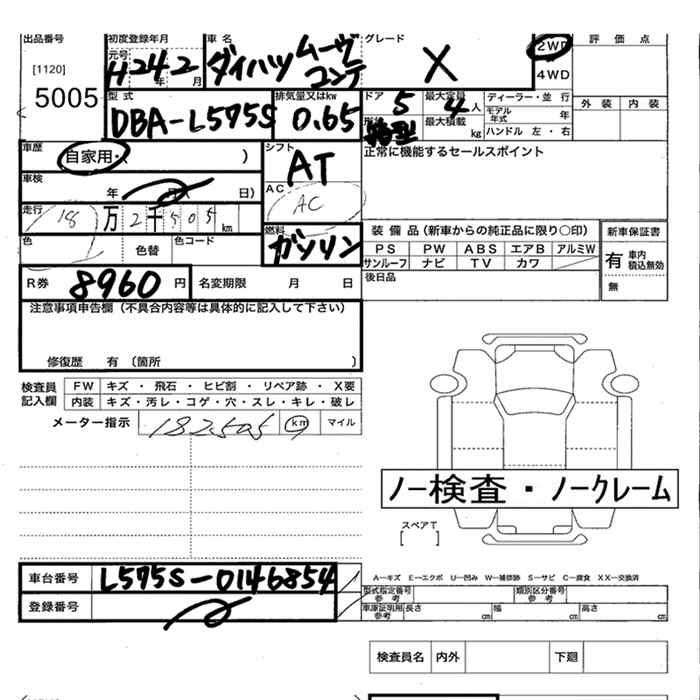 出品番号 初度登録年月 車名 グレード 2WD 評価点
[1120] 元号 H24年2月 ダイハツ ムーヴ コンテ X 4WD
5005 型式 排気量又はkw ドア 最大定員 ディーラー・並行 外装 内装
DBA-L575S 0.65 5 4人 モデル年式 年
形状 箱型 最大積載 kg ハンドル 左・右
車歴 自家用・( ) シフト AT 正常に機能するセールスポイント
車検 年 月( 日) AC AC
走行 18万2千505km 燃料 ガソリン 装備品(新車からの純正品に限り○印) 新車保証書
色 色替 色コード PS PW ABS エアB アルミW 有 車内積込無効
サンルーフ ナビ TV カワ
R券 8960円 名変期限 月 日 後日品 無
注意事項申告欄(不具合内容等は具体的に記入して下さい)
修復歴 有(箇所 )
検査員記入欄 FW キズ・飛石・ヒビ割・リペア跡・X要
内装 キズ・汚レ・コゲ・穴・スレ・キレ・破レ
メーター指示 182505 km マイル
ノー検査・ノークレーム
スペアT
[ ]
車台番号 L575S-0146854
登録番号
A―キズ E―エクボ U―凹み W―補修跡 S―サビ C―腐食 XX―交換済
型式指定番号 参考 類別区分番号 参考
車庫証明用 参考 長さ cm 幅 cm 高さ cm
検査員名 内外 下廻